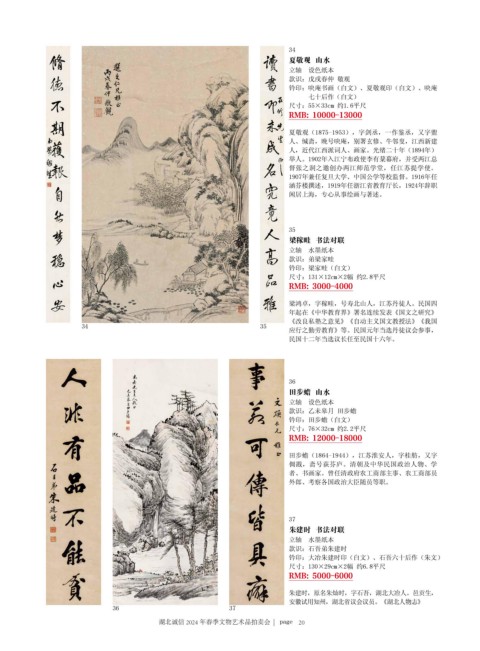 34
夏敬观　山水
立轴　设色纸本
款识：戊戌春仲 敬观
钤印：吷庵书画（白文）、夏敬观印（白文）、吷庵
七十后作（白文）
尺寸：55×33cm 约1.6平尺
RMB: 10000-13000
夏敬观（1875-1953），字剑丞，一作鉴丞，又字盥
人、缄斋，晚号吷庵，别署玄修、牛邻叟，江西新建
人，近代江西派词人、画家。光绪二十年（1894年）
举人，1902年入江宁布政使李有棻幕府，并受两江总
督张之洞之邀创办两江师范学堂，任江苏提学使。
1907年兼任复旦大学、中国公学等校监督。1916年任
涵芬楼撰述，1919年任浙江省教育厅长，1924年辞职
闲居上海，专心从事绘画与著述。
35
梁稼畦　书法对联
立轴　水墨纸本
款识：弟梁家畦
钤印：梁家畦（白文）
尺寸：131×12cm×2幅 约2.8平尺
RMB: 3000-4000
梁鸿卓，字稼畦，号寿北山人，江苏丹徒人。民国四
年起在《中华教育界》署名连续发表《国文之研究》
《改良私塾之意见》《自动主义国文教授法》《我国
应行之勤劳教育》等。民国元年当选丹徒议会参事，
民国十二年当选议长任至民国十六年。
修德不期获报自然梦稳心安
读书即未成名究竟人高品雅
34
35
36
田步蟾　山水
立轴　设色纸本
款识：乙未皋月 田步蟾
钤印：田步蟾（白文）
尺寸：76×32cm 约2.2平尺
RMB: 12000-18000
田步蟾（1864-1944），江苏淮安人，字桂舫，又字
37
朱建时　书法对联
立轴　水墨纸本
款识：石吾弟朱建时
钤印：大冶朱建时印（白文）、石吾六十后作（朱文）
尺寸：130×29cm×2幅 约6.8平尺
RMB: 5000-6000
朱建时，原名朱灿时，字石吾，湖北大冶人。邑贡生，
安徽试用知州，湖北省议会议员。《湖北人物志》
人非有品不能贫
石吾弟朱建时
事若可传皆具癖
36
37
湖北诚信 2024 年春季文物艺术品拍卖会 | page 20